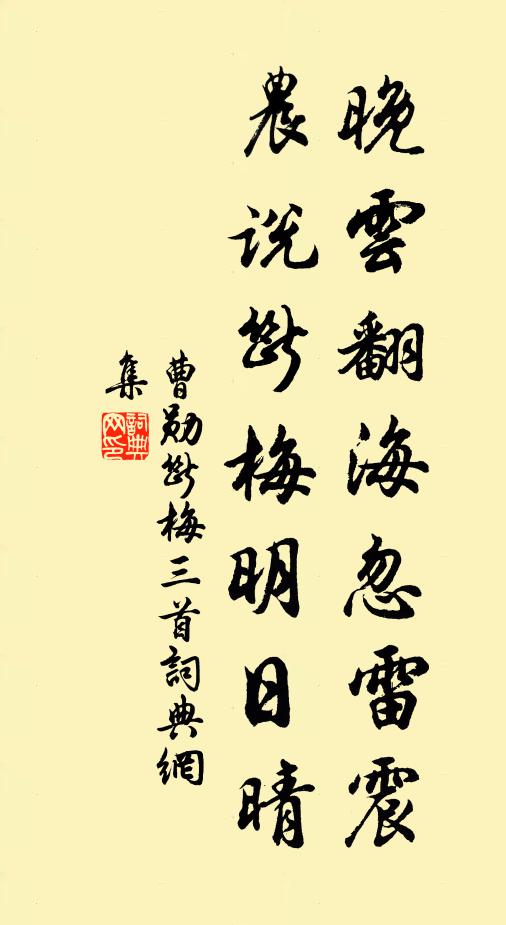 晚雲翻海忽雷震
農説斷梅明日晴
曹勛斷梅三首詞典網
集
詞典
网印